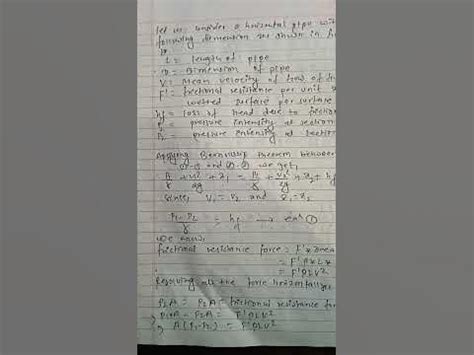 Let us consider a horizontal pipe with
following dimension as shown in
L = length of pipe
D = Dimension of pipe
V = Mean velocity of flow of
F' = frictional resistance per unit
wetted surface per surface
hf = loss of head due to friction
P1 = pressure intensity at section
P2 = pressure intensity at section
Applying Bernoulli's theorem between
and we get,
P1/γ + V1²/2g + Z1 = P2/γ + V2²/2g + Z2 + hf
Since, V1 = V2 and Z1 = Z2
P1-P2/γ = hf → eqn ①
we know,
frictional resistance force = F' *
= F' P * L *
= F' PLV²
Resolving all the force horizontally
P1A = P2A + frictional resistance
P1A - P2A = F' PLV²
A (P1-P2) = F' PLV²